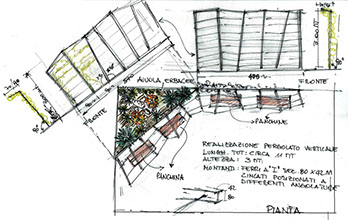 3.00 MT
400
FRONTE
AIUOLA ERBACEE
FRONTE
PANCHINE
PANCHINA
REALIZZAZIONE PERGOLATO VERTICALE
LUNGH. TOT: CIRCA 11 MT
ALTEZZA: 3 MT.
MONTANTI: FERRI A "I" DEL 80 X 42 M
ZINCATI POSIZIONATI A
DIFFERENTI ANGOLATURE
42
80
PIANTA